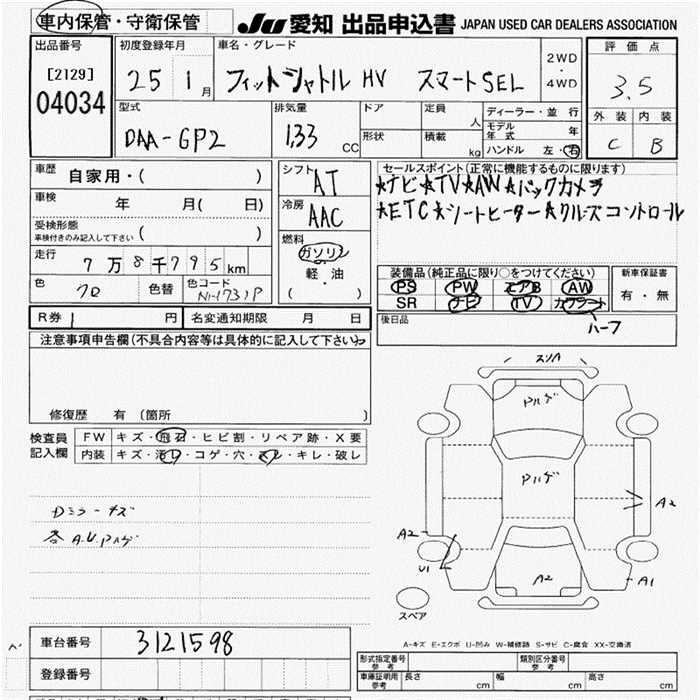 車内保管・守衛保管
JU 愛知 出品申込書 JAPAN USED CAR DEALERS ASSOCIATION
出品番号
[2129]
04034
初度登録年月
25 1月
車名・グレード
フィットシャトル HV スマートSEL
2WD
・
4WD
評価点
3.5
外装 内装
C B
型式
DAA-GP2
排気量
1.33 CC
ドア
形状
定員 人
積載 kg
ディーラー・並行
モデル年式 年
ハンドル 左・右
車歴
自家用・( )
車検 年 月( 日)
受検形態
車検付きのみ記入して下さい ( )
走行 7万8千795km
色 クロ 色替 色コード
シフト AT
冷房 AAC
燃料
ガソリン
軽・油
( )
セールスポイント(正常に機能するものに限ります)
★ナビ★TV★AW★バックカメラ
★ETC★シートヒーター★クルーズコントロール
装備品(純正品に限り○をつけてください)
PS PW エアB AW
SR ナビ TV カワシート
ハーフ
新車保証書
有・無
後日品
R券 円 名変通知期限 月 日
注意事項申告欄(不具合内容等は具体的に記入して下さい)
修復歴 有 (箇所 )
検査員記入欄
FW キズ・飛石・ヒビ割・リペア跡・X要
内装 キズ・汚レ・コゲ・穴・スレ・キレ・破レ
Dミラーキズ
各A.U.Pハゲ
スリA
Pハゲ
Pハゲ
A2
A2
U1
A2
A1
スペア
A-キズ E-エクボ U-凹み W-補修跡 S-サビ C-腐食 XX-交換済
車台番号 3121598
登録番号
形式指定番号 参考
類別区分番号 参考
車庫証明用 参考 長さ cm 幅 cm 高さ cm